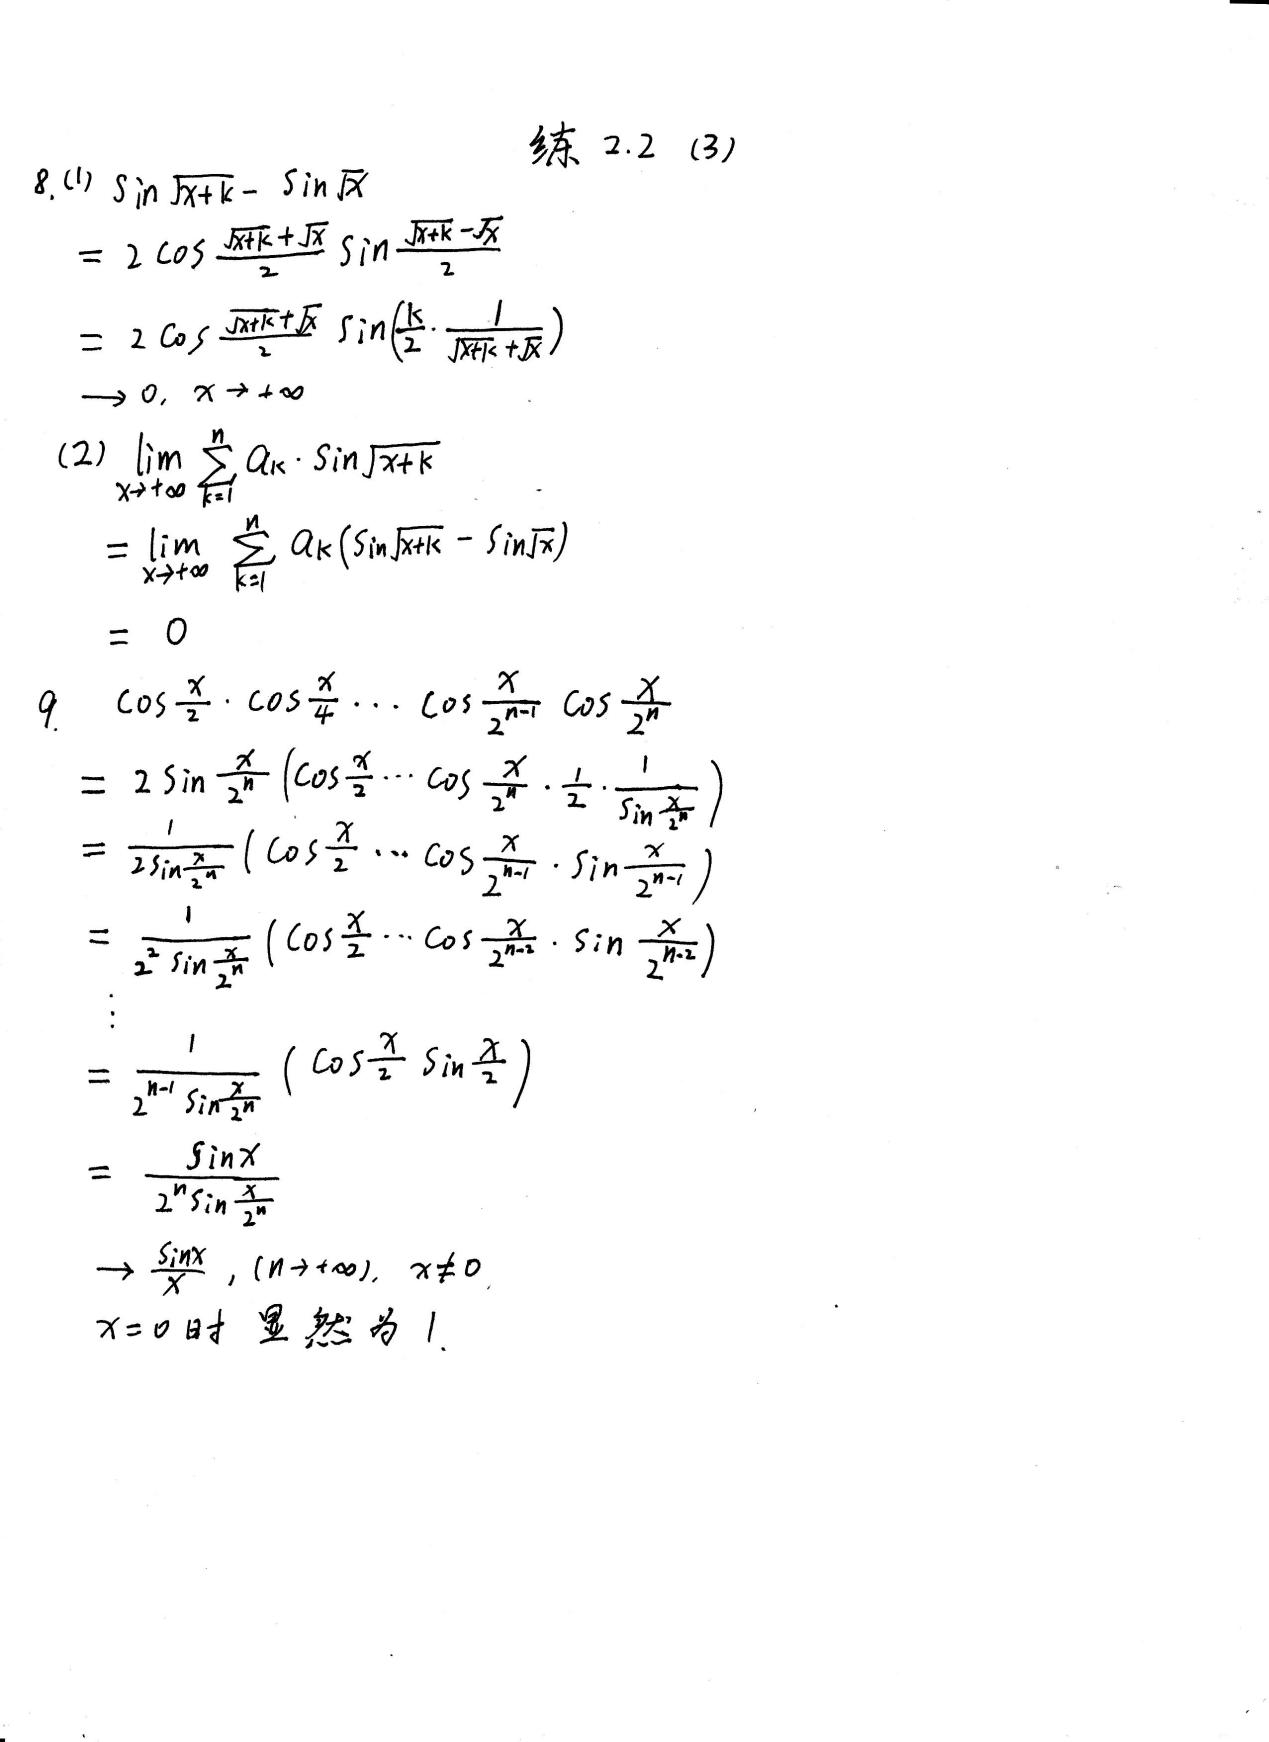 练 2.2 (3)
8.(1) sin√(x+k) - sin√x
= 2 cos (√(x+k)+√x)/2 sin (√(x+k)-√x)/2
= 2 cos (√(x+k)+√x)/2 sin(k/2 · 1/(√(x+k)+√x))
→ 0, x→+∞
(2) lim_{x→+∞} ∑_{k=1}^{n} a_k · sin√(x+k)
= lim_{x→+∞} ∑_{k=1}^{n} a_k(sin√(x+k) - sin√x)
= 0
9. cos x/2 · cos x/4 ... cos x/2^{n-1} cos x/2^n
= 2 sin x/2^n (cos x/2 ... cos x/2^n · 1/2 · 1/(sin x/2^n))
= 1/(2 sin x/2^n) (cos x/2 ... cos x/2^{n-1} · sin x/2^{n-1})
= 1/(2^2 sin x/2^n) (cos x/2 ... cos x/2^{n-2} · sin x/2^{n-2})
⋮
= 1/(2^{n-1} sin x/2^n) (cos x/2 sin x/2)
= sin x/(2^n sin x/2^n)
→ sin x/x , (n→+∞), x≠0.
x=0时 显然为1.